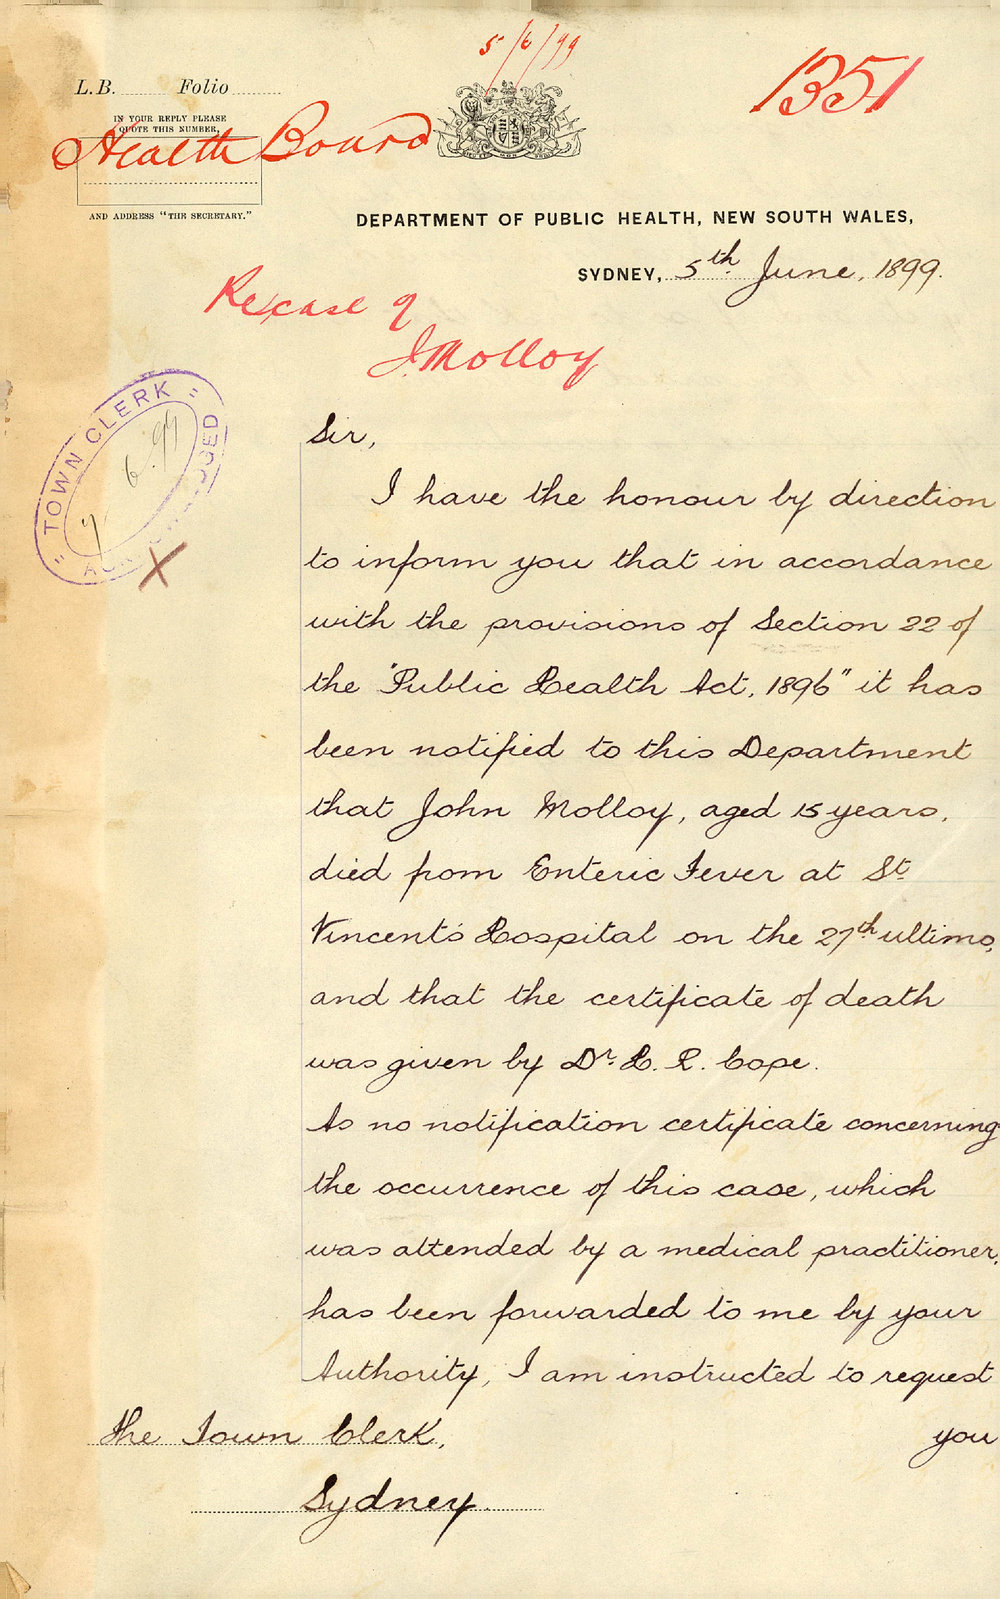 5/6/99
1351
L.B. Folio
IN YOUR REPLY PLEASE
QUOTE THIS NUMBER,
Health Board
AND ADDRESS "THE SECRETARY."
DEPARTMENT OF PUBLIC HEALTH, NEW SOUTH WALES,
SYDNEY, 5th June, 1899.
Re case of
J. Molloy
TOWN CLERK
6.99
Sir,
I have the honour by direction
to inform you that in accordance
with the provisions of Section 22 of
the "Public Health Act, 1896" it has
been notified to this Department
that John Molloy, aged 15 years,
died from Enteric Fever at St
Vincent's Hospital on the 27th ultimo,
and that the certificate of death
was given by Dr. H. R. Cope.
As no notification certificate concerning
the occurrence of this case, which
was attended by a medical practitioner,
has been forwarded to me by your
Authority, I am instructed to request
you
The Town Clerk,
Sydney.